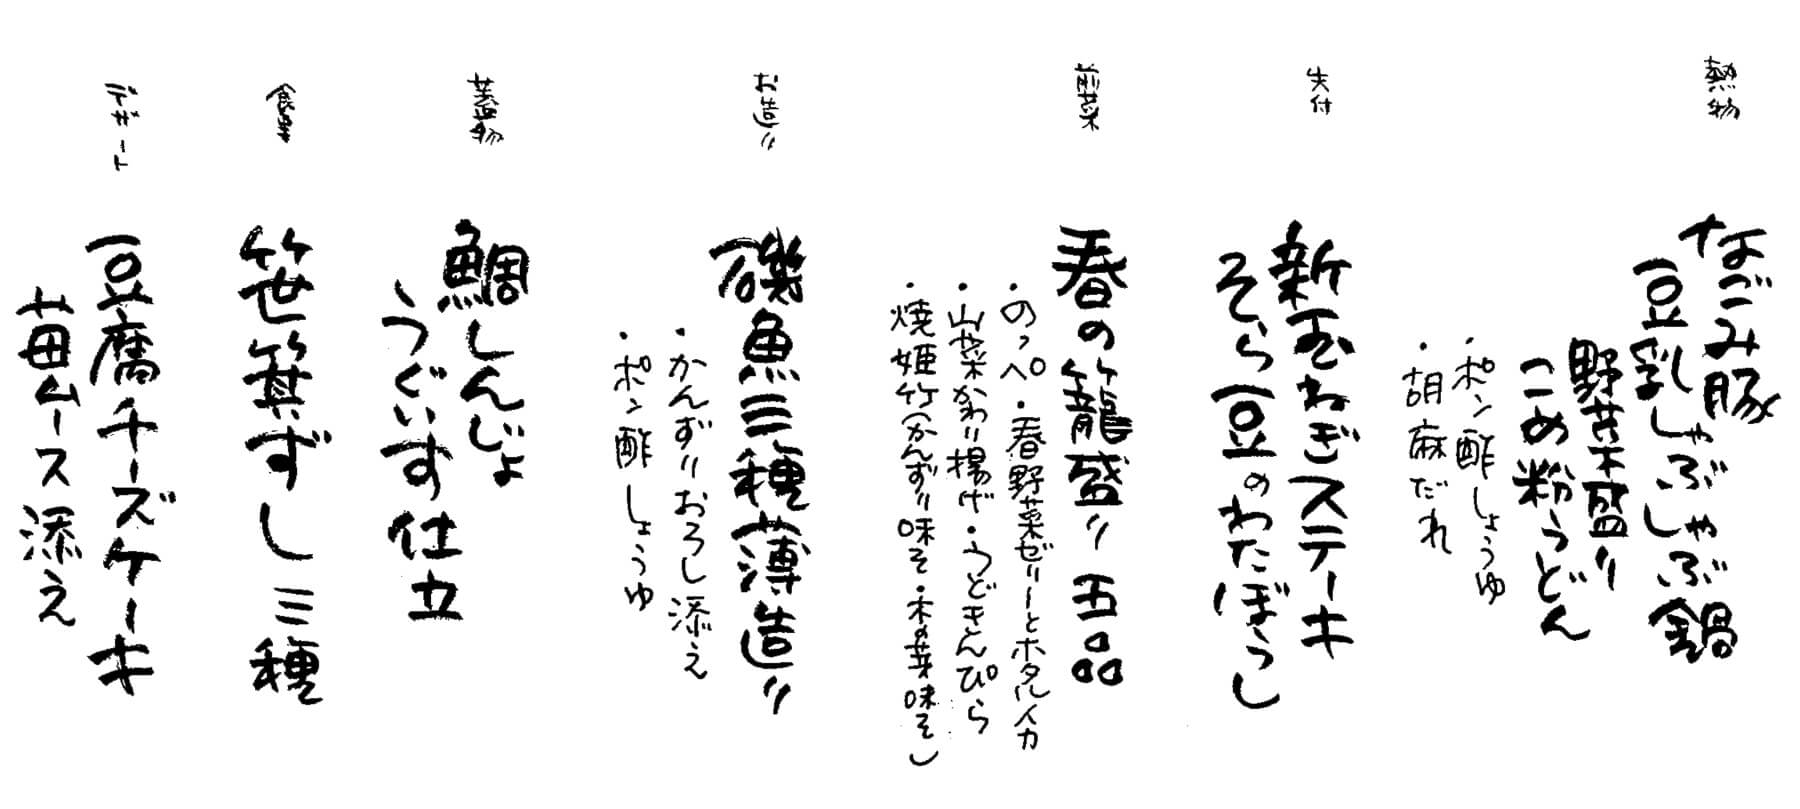 熱物
なごみ豚
豆乳しゃぶしゃぶ鍋
野菜盛り
こめ粉うどん
・ポン酢しょうゆ
・胡麻だれ
先付
新玉ねぎステーキ
そら豆のわたぼうし
前菜
春の籠盛り 五品
・のっペ・春野菜ゼリーとホタルイカ
・山菜かわり揚げ・うどきんぴら
・焼姫竹(かんずり味そ・木の芽味そ)
お造り
磯魚三種薄造り
・かんずりおろし添え
・ポン酢しょうゆ
蓋物
鯛しんじょ
うぐいす仕立
食事
笹箕ずし 三種
デザート
豆腐チーズケーキ
苺ムース添え